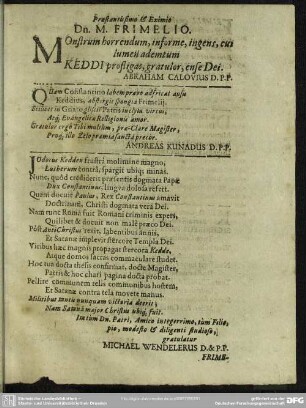 Præstantissimo & Eximio
Dn. M. FRIMELIO.
MOnstrum horrendum, informe, ingens, cui
lumen ademtum
KEDDI profligas, gratulor, ense Dei.
ABRAHAM CALOVIUS D.P.P.
QUam Constantino labem prave adfricat ausu
Keddius, abstergit spongia Frimelij.
Gratulor ergò Tibi multùm, præ-Clare Magister,
ANDREAS KUNADUS D.P.P.
JOdocus Kedden frustrà molimine magno,
Lutherum contrà, spargit ubiq; minas.
Nunc, quòd crediderit præsentis dogmata Papæ
Dux Constantinus, lingua dolosa refert.
Quem docuit Paulus, Rex Constantinus amavit
Doctrinam, Christi dogmata vera Dei.
Nam tunc Roma fuit Romani criminis expers,
Quilibet & docuit non malè præco Dei.
Pòst AntiChristus venit, labentibus annis,
Et Satanæ implevit stercore Templa Dei.
Viribus hæc magnis propagat stercora Kedde,
Atque domos sacras commaculare studet.
Hoc tua docta thesis confirmat, docte Magister,
Patris & hoc chari pagina docta probat.
Pellite communem telis communibus hostem,
Et Satanæ contra tela movete manus.
Militibus motis nunquam victoria deerit;
Nam Satanâ major Christus ubiq, fuit.
Imtim Dn. Patri, Amico integerrimo, tùm Filio,
pio, modesto & diligenti studioso,
gratulatur
MICHAEL WENDELERUS D. & P.P.
FRIME-